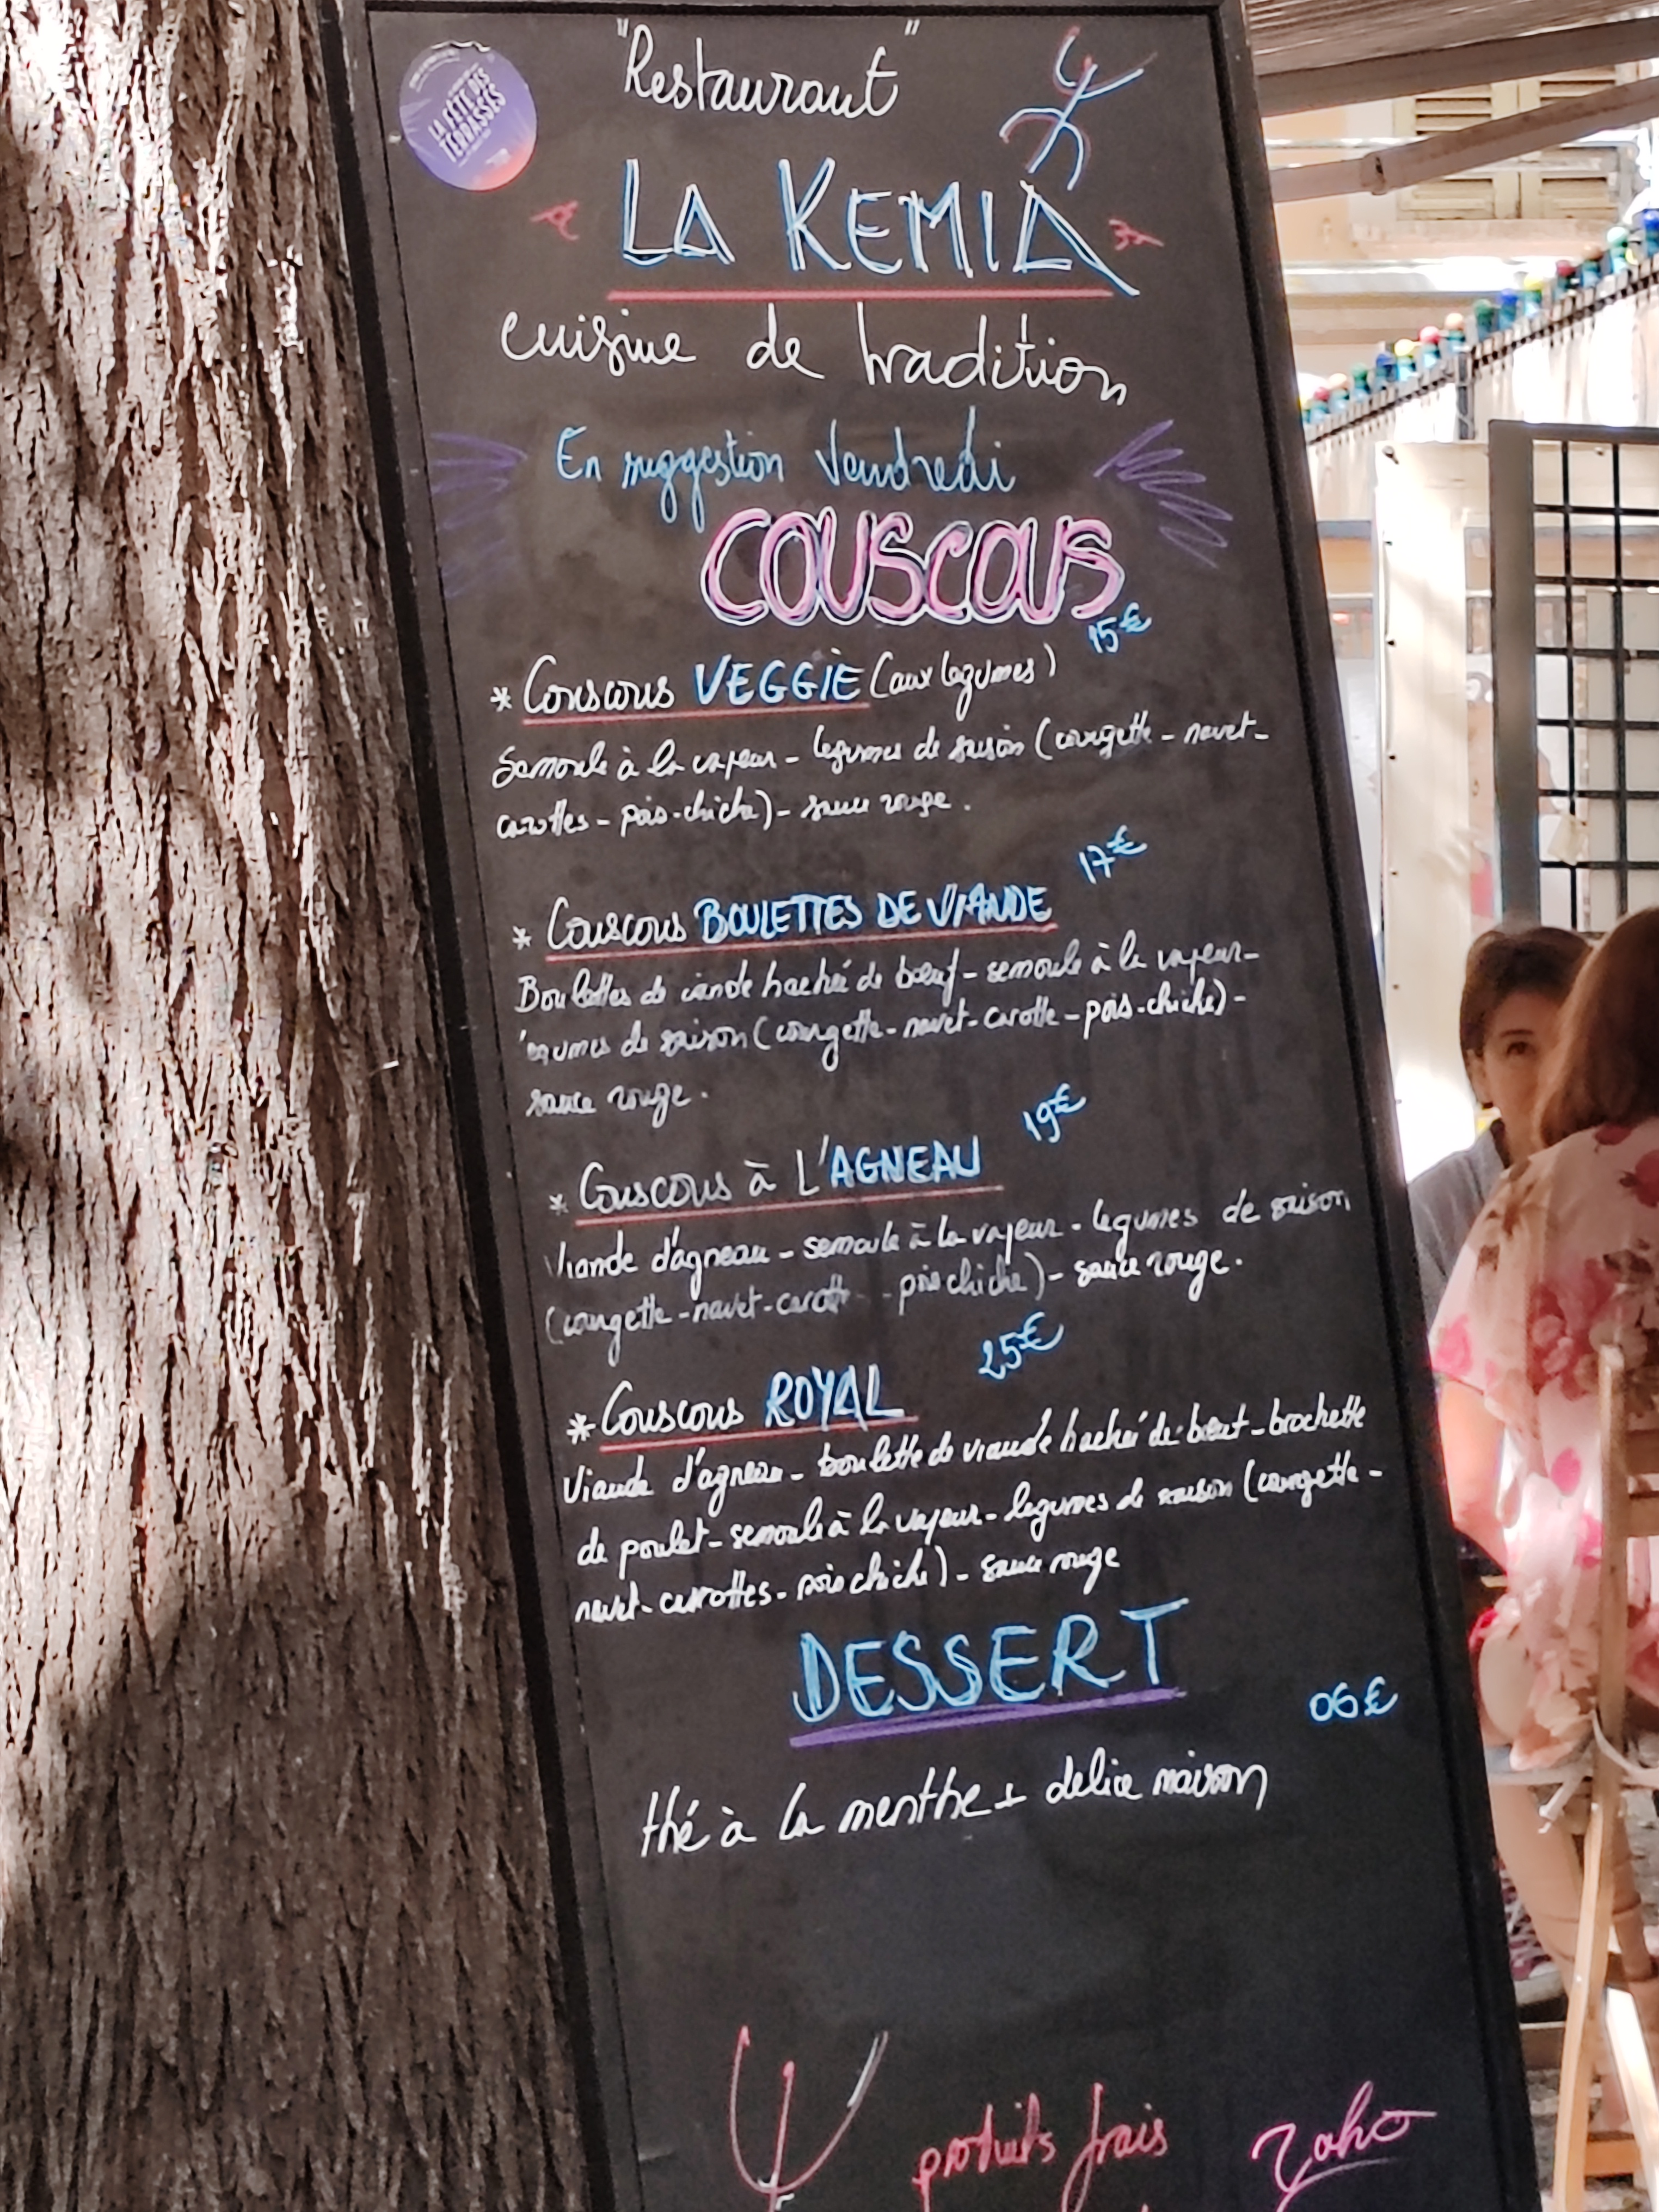 LA FÊTE DES
TERRASSES
"Restaurant"
LA KEMIA
cuisine de tradition
En suggestion Vendredi
COUSCOUS
15€
* Couscous VEGGIE (aux legumes)
Semoule à la vapeur - legumes de saison (courgette - navet -
carottes - pois-chiche) - sauce rouge.
17€
* Couscous BOULETTES DE VIANDE
Boulettes de viande haché de bœuf - semoule à la vapeur -
legumes de saison (courgette - navet - carotte - pois-chiche) -
sauce rouge.
19€
* Couscous à L'AGNEAU
Viande d'agneau - semoule à la vapeur - legumes de saison
(courgette - navet - carotte - pois chiche) - sauce rouge.
25€
* Couscous ROYAL
Viande d'agneau - boulette de viande haché de bœuf - brochette
de poulet - semoule à la vapeur - legumes de saison (courgette -
navet - carottes - pois chiche) - sauce rouge
DESSERT
06€
thé à la menthe + delice maison
produits frais